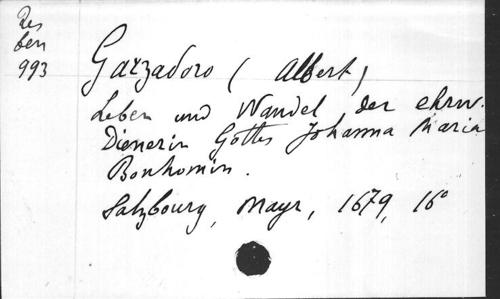 Res
ben
993
Garzadoro (Albert)
Leben und Wandel der ehrw.
Dienerin Gottes Johanna Maria
Bonhomin.
Salzbourg, Mayr, 1679, 16°